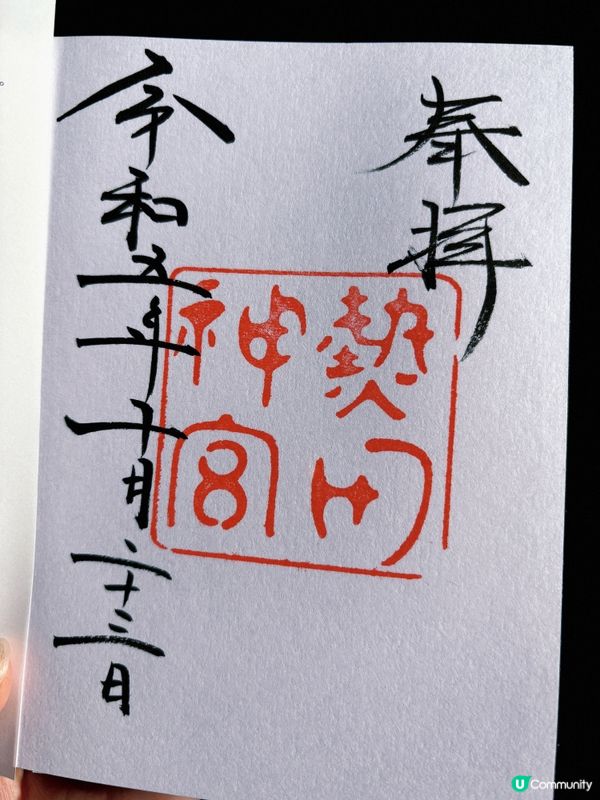 奉拝
熱田
神宮
令和五年十月二十三日
U Community